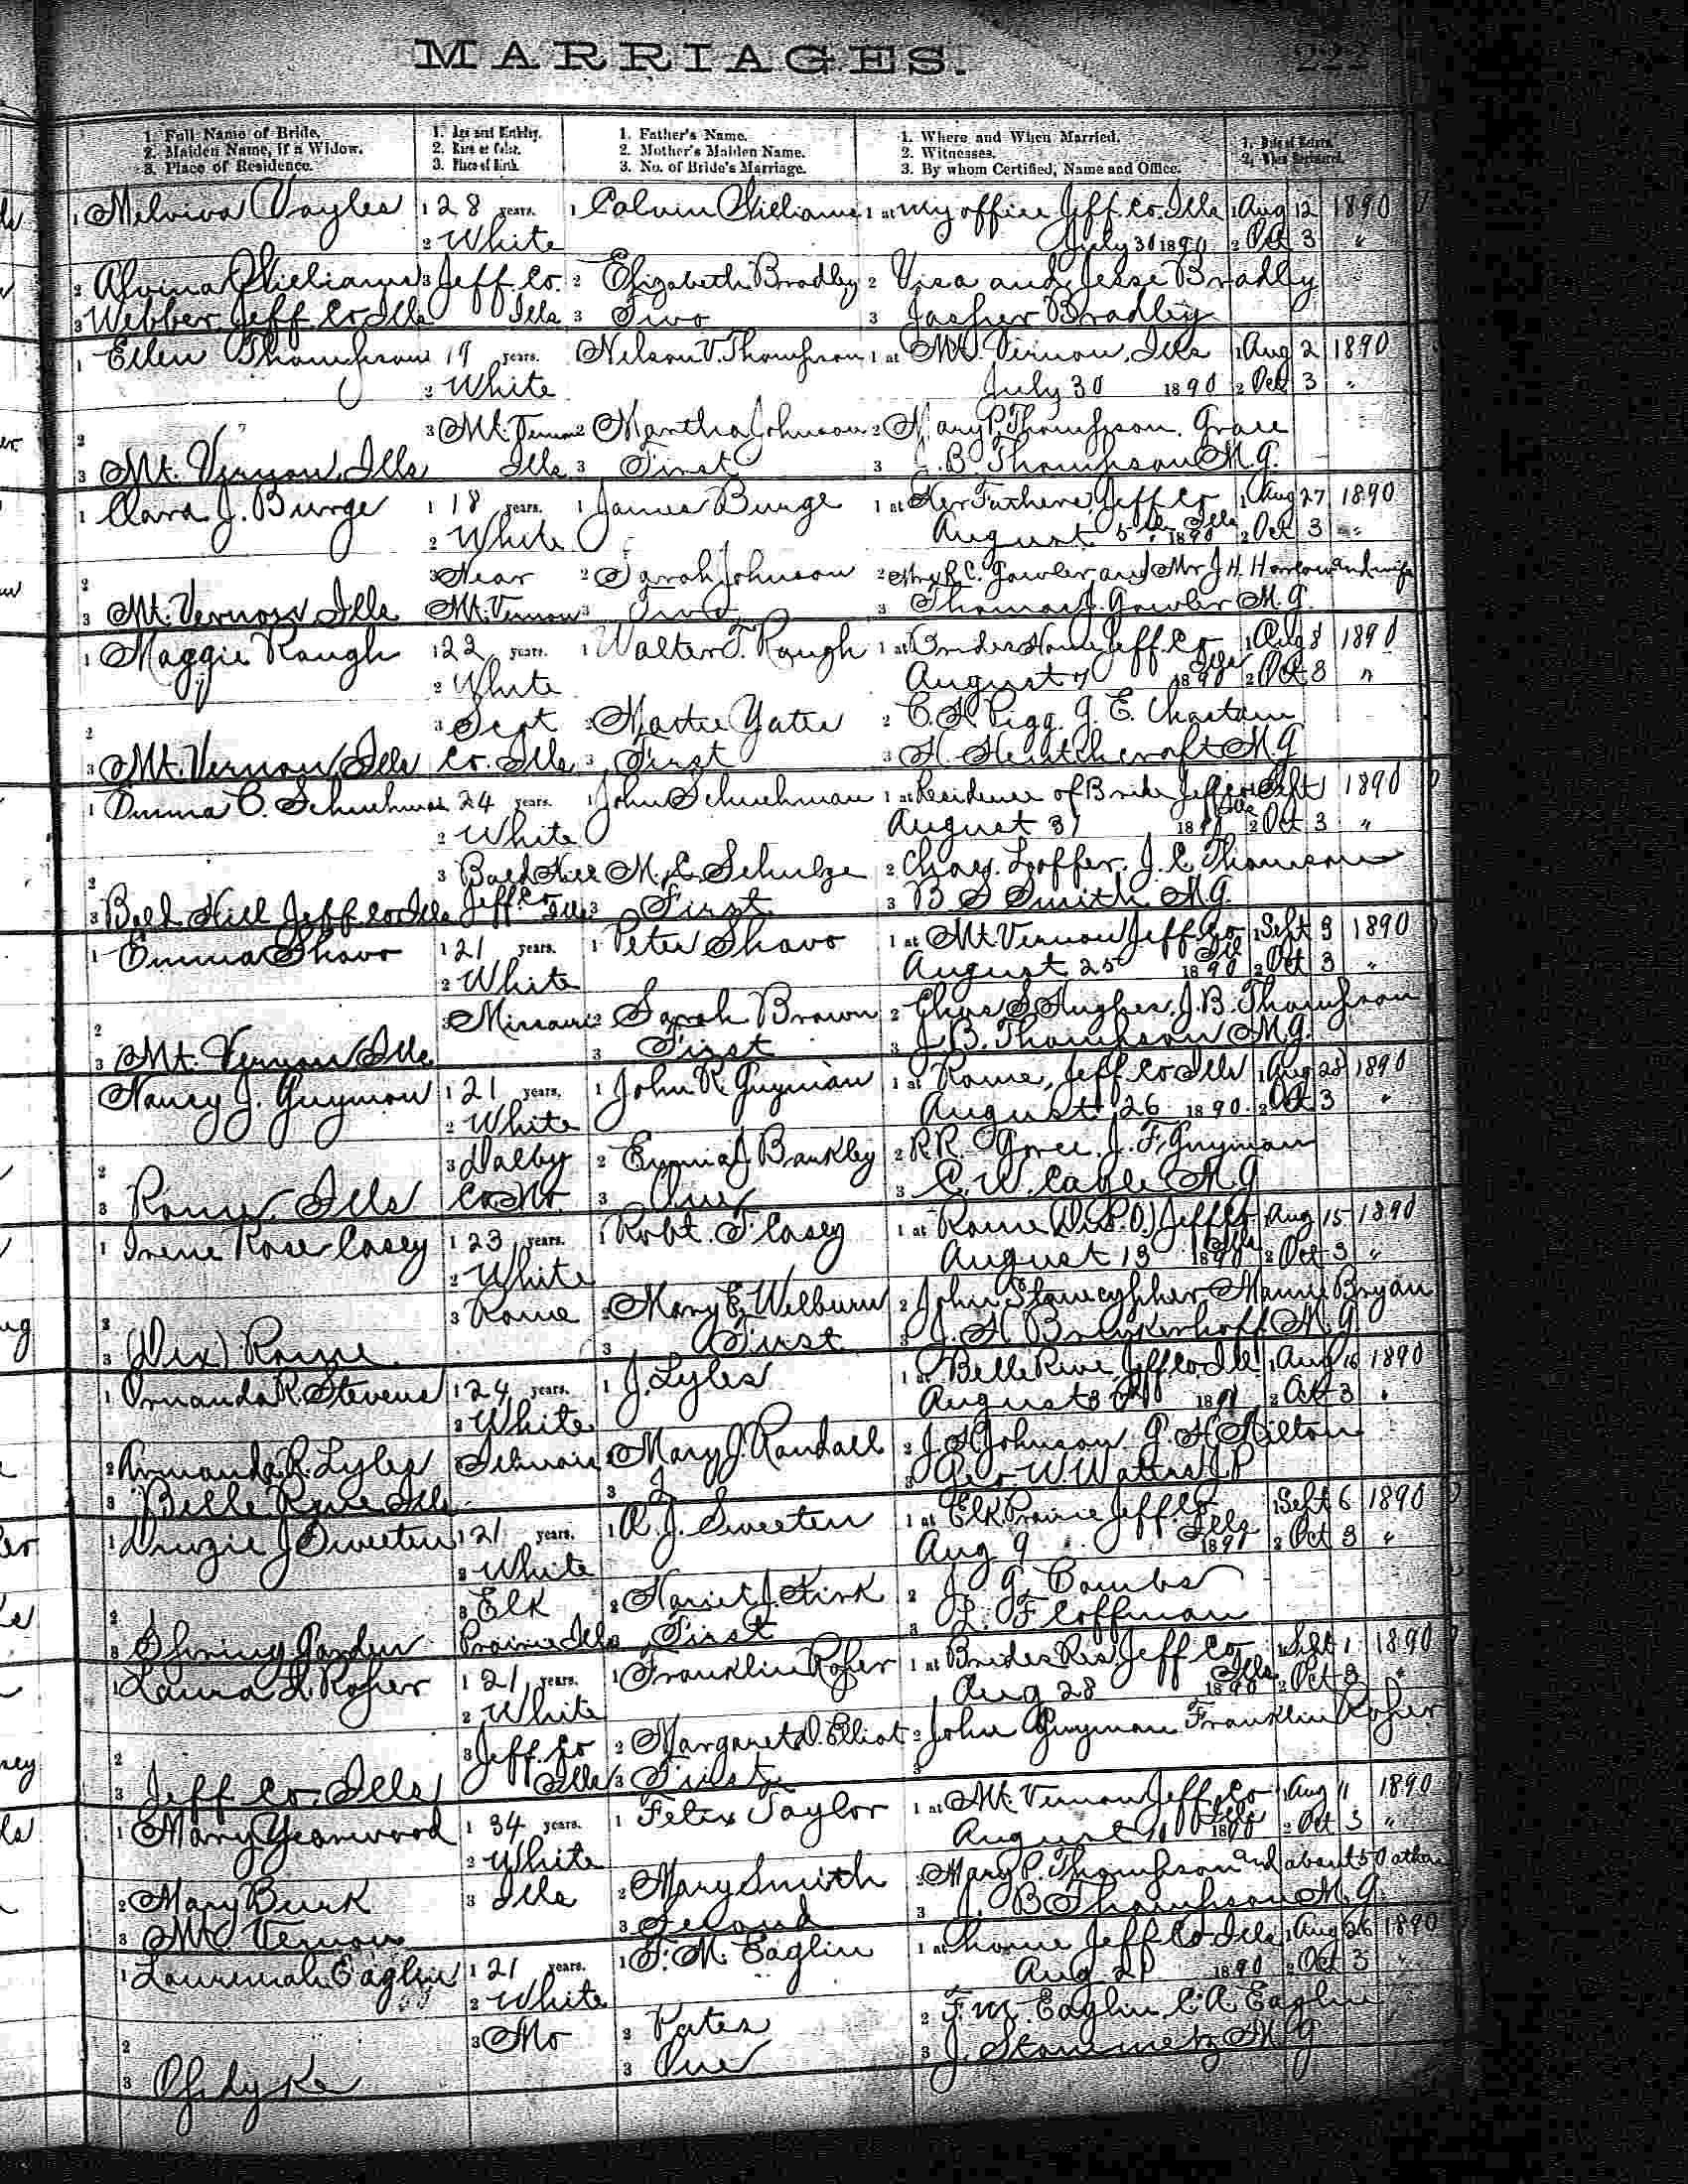 MARRIAGES.
222
1. Full Name of Bride.
2. Maiden Name, if a Widow.
3. Place of Residence.
1. Age next Birthday.
2. Race or Color.
3. Place of Birth.
1. Father's Name.
2. Mother's Maiden Name.
3. No. of Bride's Marriage.
1. Where and When Married.
2. Witnesses.
3. By whom Certified, Name and Office.
1. Date of Return.
2. When Registered.
1 Melviva Vayles 1 28 years. 1 Calvin Williams 1 at My office Jeff. Co. Ills 1 Aug 12 1890
2 White July 30 1890 2 Oct 3 "
2 Alvina Williams 3 Jeff. Co. 2 Elizabeth Bradley 2 Visa and Jesse Bradly
3 Webber Jeff Co Ills Ills 3 Two 3 Jasher Bradley
1 Ellen Thompson 19 years. Nelson V. Thompson 1 at Mt. Vernon, Ills 1 Aug 2 1890
2 White July 30 1890 2 Oct 3 "
2 3 Mt. Vernon 2 Martha Johnson 2 Mary P. Thompson, Grace
3 Mt. Vernon, Ills Ills 3 First 3 J. B. Thompson M.G.
1 Clara J. Burge 1 18 years. 1 James Burge 1 at Her Fathers, Jeff Co 1 Aug 27 1890
2 White August 5th Ills 1890 2 Oct 3 "
2 3 Near 2 Sarah Johnson 2 R. C. Gowler and Mr J. H. Harlow and wife
3 Mt. Vernon Ills Mt. Vernon 3 3 Thomas J. Gowler M.G.
1 Maggie Raugh 1 22 years. 1 Walter T. Raugh 1 at Brides Home Jeff. Co 1 Aug 8 1890
2 White August 7 Ills 1890 2 Oct 3 "
2 3 Scott 2 Yates 2 C. H. Pigg. J. E. Chastain
3 Mt. Vernon Ills Co. Ills 3 First 3 H. Hutchcraft M.G
1 Emma C. Schuehman 24 years. 1 John Schuehman 1 at Residence of Bride Jeff Sept 1890
2 White August 31 1890 2 Oct 3 "
2 3 Bald Hill M. C. Schulze 2 Chas. Loffer. J. C. Thomson
3 Bald Hill Jeff Co Ills Jeff. Co Ills 3 First 3 B S Smith M.G.
1 Emma Shavo 1 21 years. 1 Peter Shavo 1 at Mt Vernon Jeff. Co 1 Sept 3 1890
2 White August 25 Ills 1890 2 Oct 3 "
2 3 Missouri 2 Sarah Brown 2 Chas S Hughes. J. B. Thompson
3 Mt. Vernon Ills 3 First 3 J. B. Thompson M.G.
Nancy J. Guymon 1 21 years. 1 John R Guyman 1 at Rome, Jeff Co Ills 1 Aug 28 1890
2 White August 26 1890. 2 Oct 3 "
2 3 Dalby 2 Emma J. Barkley 2 R R. Goree. J. F. Guyman
3 Rome, Ills Co Mo. 3 One 3 C. W. Cable M.G
1 Irene Rose Casey 1 23 years. 1 Robt. F. Casey 1 at Rome (Dix P.O.) Jeff Co 1 Aug 15 1890
2 White August 13 Ills 1890 2 Oct 3 "
2 3 Rome 2 Mary E. Wilburn 2 John Stonecypher Mamie Bryan
3 (Dix) Rome 3 First 3 J. H. Brinkerhoff M.G
1 Amanda R. Stevens 1 24 years. 1 J. Lyles 1 at Belle Rive, Jeff Co Ills 1 Aug 16 1890
2 White August 3 1890 2 Oct 3 "
2 Armanda R. Lyles Illinois 2 Mary J. Randall 2 J H Johnson. G. H. Hilton
3 Belle Rive Ills 3 2 3 Geo W. Watters J.P
1 J Sweeten 1 21 years. 1 R. J. Sweeten 1 at Elk Prairie Jeff. Co 1 Sept 6 1890
2 White Aug 9 Ills 1890 2 Oct 3 "
2 3 Elk 2 Harriet J. Kirk 2 J. G. Combs
3 Spring Garden Prairie Ills First 3 L. F Coffman
1 Laura L. Roper 1 21 years. 1 Franklin Roper 1 at Brides Res. Jeff Co 1 Sept 1 1890
2 White Aug 28 Ills 1890 2 Oct 3 "
2 3 Jeff. Co 2 Margaret D. Elliot 2 John Guyman Franklin Roper
3 Jeff Co. Ills Ills 3 First 3
1 Mary Yearwood 1 34 years. 1 Felix Taylor 1 at Mt. Vernon Jeff. Co 1 Aug 11 1890
2 White August 10 Ills 1890 2 Oct 3 "
2 Mary Burk 3 Ills 2 Mary Smith 2 Mary P. Thompson and about 50 others
3 Mt. Vernon 3 Second 3 J. B Thompson M.G.
1 Eaglin 1 21 years. 1 F. M. Eaglin 1 at home Jeff Co Ills 1 Aug 26 1890
2 White Aug 21 1890 2 Oct 3 "
2 3 Mo 2 Pates 2 F. M. Eaglin C. A. Eaglin
3 Opdyke 3 One 3 J. Stonemetz M.G